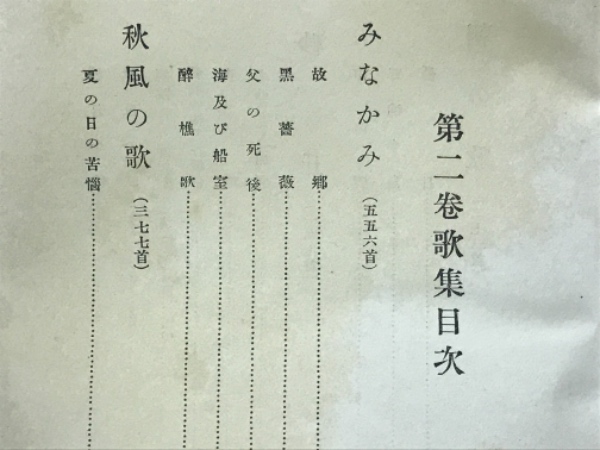 第二卷歌集目次
みなかみ(五五六首)
故鄕
黑薔薇
父の死後
海及び船室
醉樵歌
秋風の歌(三七七首)
夏の日の苦惱